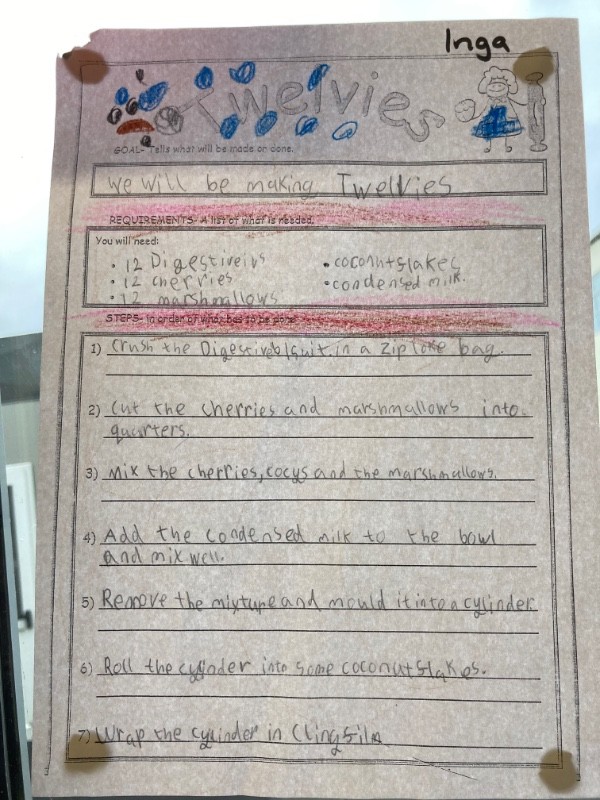 Inga
Twelvies
GOAL- Tells what will be made or done.
We will be making Twelvies
REQUIREMENTS- A list of what is needed.
You will need:
• 12 Digestiveivs
• 12 cherries
• 12 marshmallows
• coconutflakes
• condensed milk.
STEPS- In order of what has to be done
1) Crush the Digestivebisuit in a Zip loke bag.
2) Cut the cherries and marshmallows into
quarters.
3) Mix the cherries, cocys and the marshmallows.
4) Add the condensed milk to the bowl
and mix well.
5) Remove the mixture and mould it into a cylinder
6) Roll the cylinder into some coconutflakes.
7) Wrap the cylinder in Clingfilm